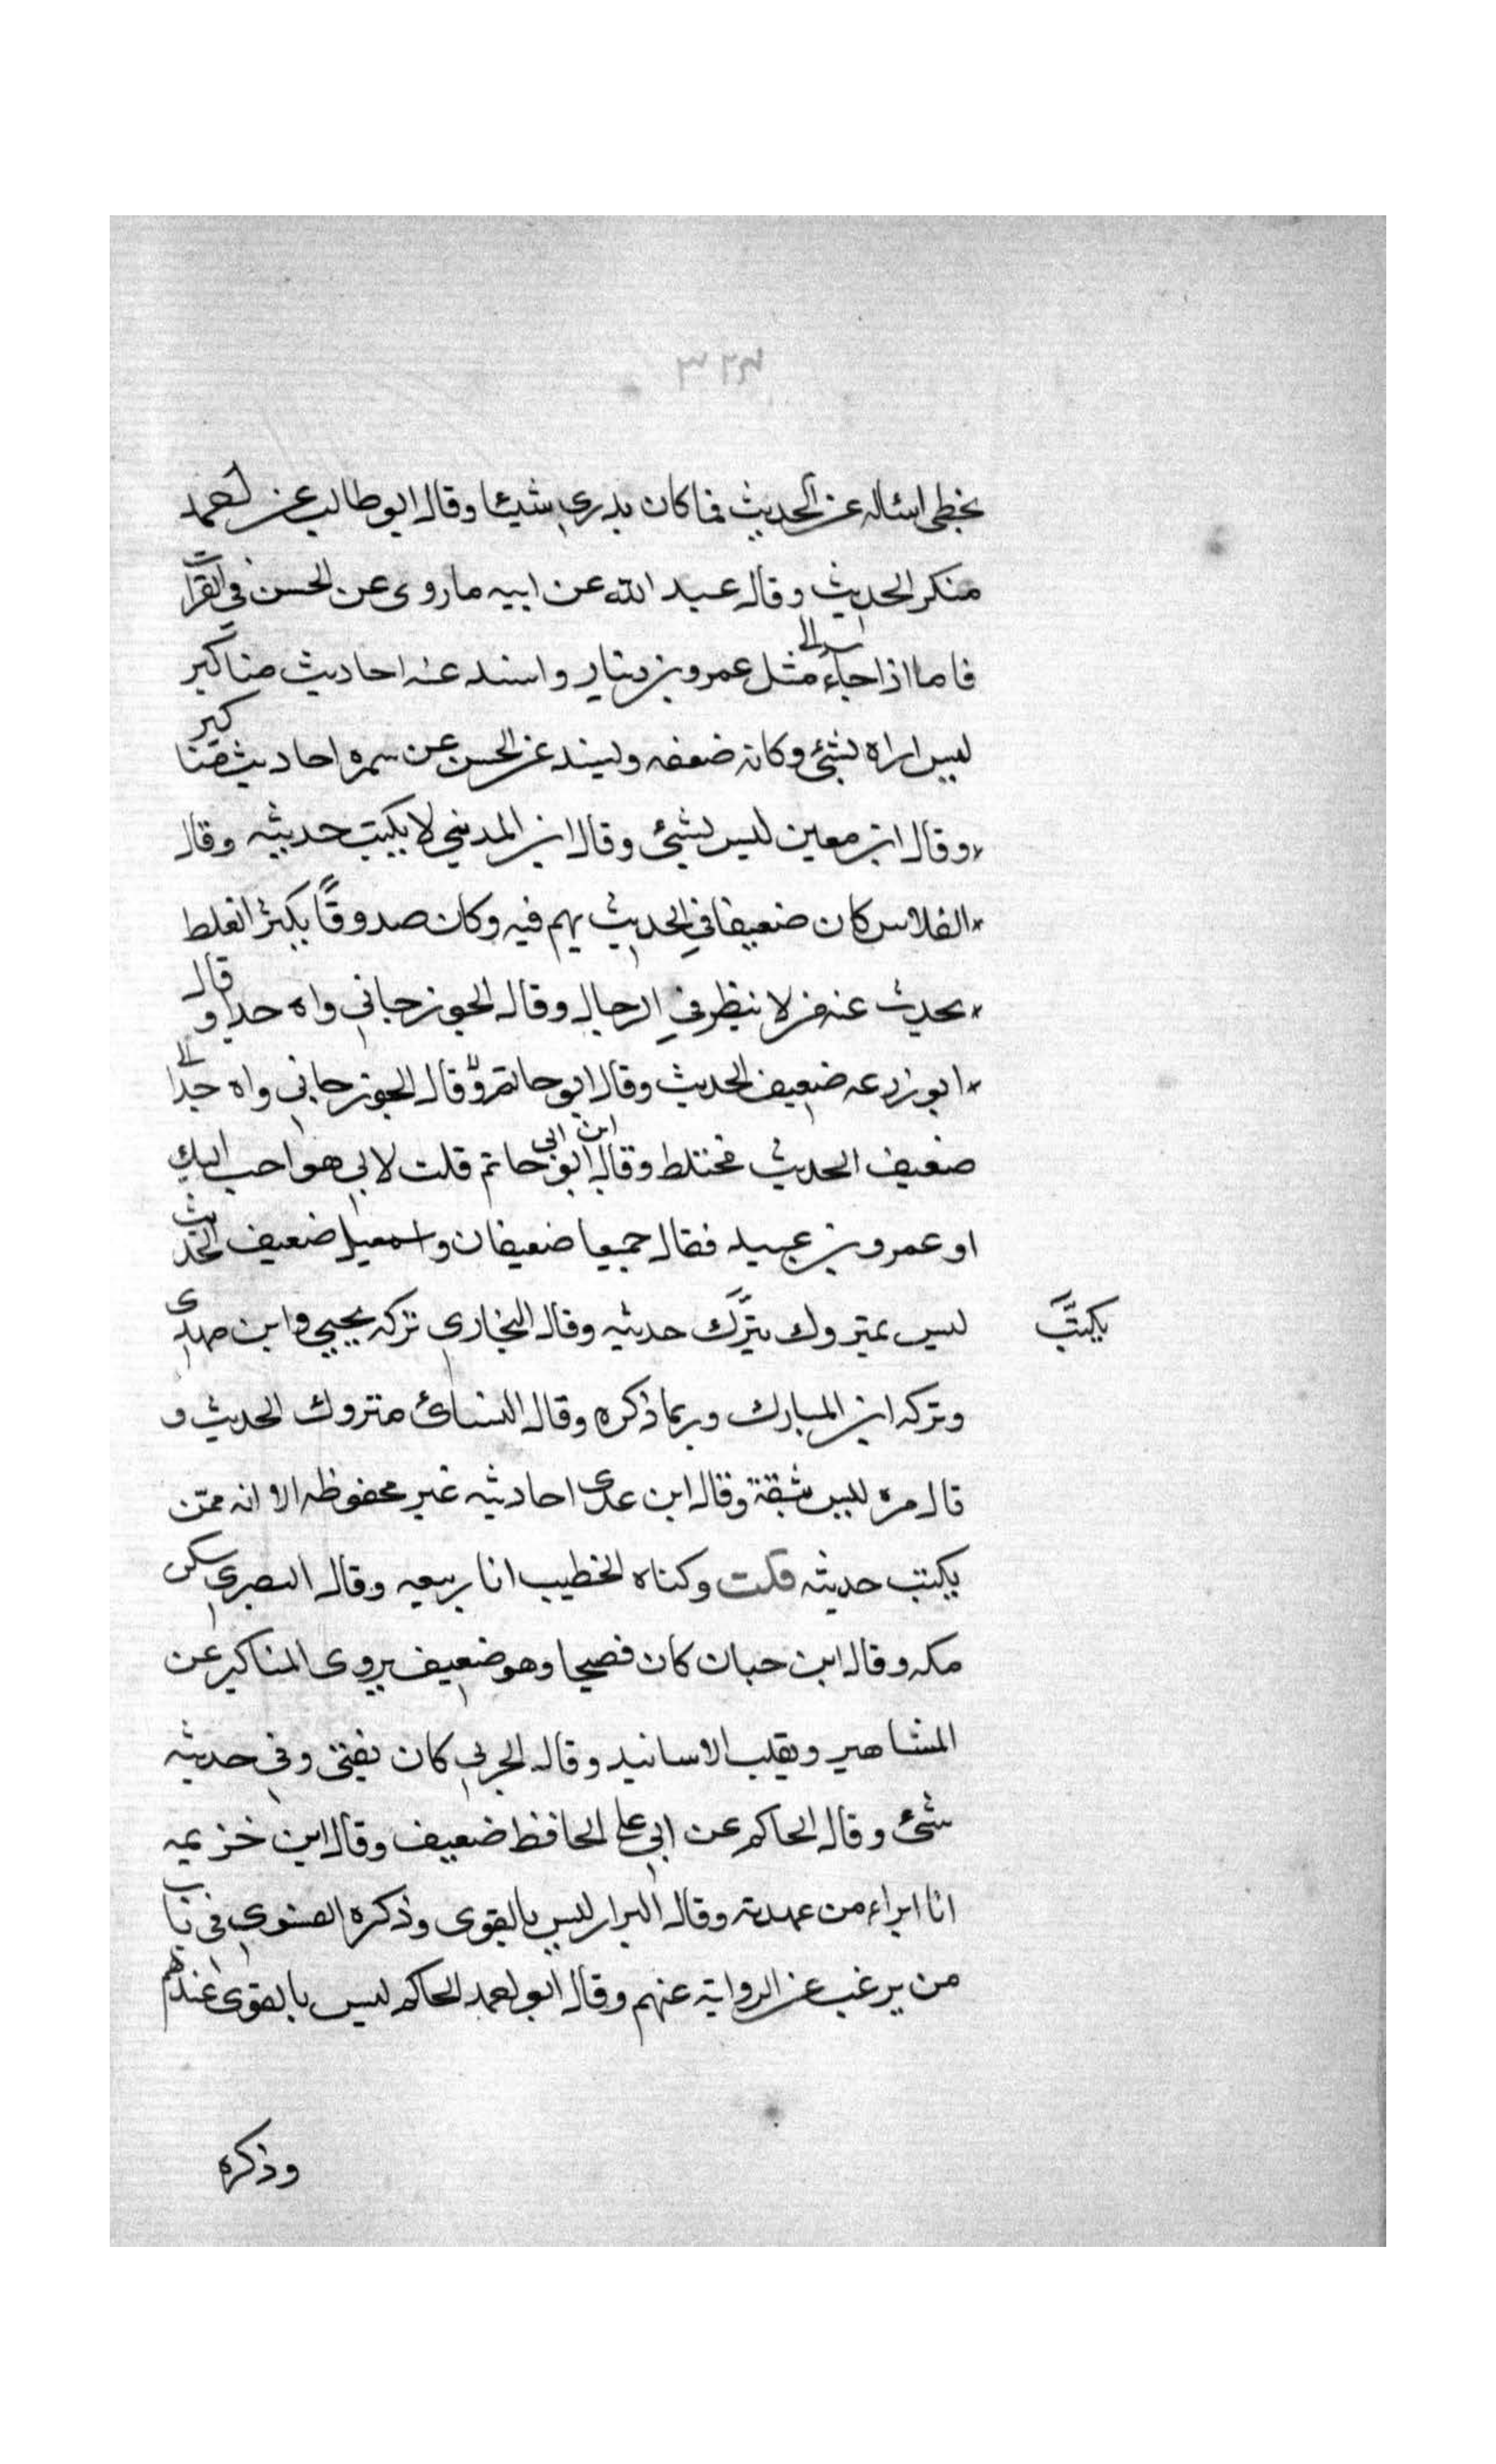 يخطى اسئاله عن الحديث فما كان يدرى شيئا وقال ابو طالب عن احمد
منكر الحديث وقال عبد الله عن ابيه ما روى عن الحسن في القرآت
فاما اذا جاء الى مثل عمرو بن دينار واسند عنه احاديث مناكير
ليس اراه بشئ وكانه ضعفه ويسند عن الحسن عن سمره احاديث مناكير
وقال ابن معين ليس بشئ وقال ابن المديني لا يكتب حديثه وقال
الفلاس كان ضعيفا في الحديث يهم فيه وكان صدوقًا يكثر الغلط
يحدث عنه من لا ينظر في الرجال وقال الجوزجاني واه جدا وقال
ابو زرعه ضعيف الحديث وقال ابو حاتم وقال الجوزجاني واه جدا
ضعيف الحديث مختلط وقال ابن ابي حاتم قلت لابي هو احب اليك
او عمرو بن عبيد فقال جميعا ضعيفان واسمعيل ضعيف الحديث
ليس بمتروك يترك حديثه وقال البخاري تركه يحيى وابن مهدى
يكتب
وتركه ابن المبارك وربما ذكره وقال النسائ متروك الحديث و
قال مره ليس بثقة وقال ابن عدى احاديثه غير محفوظه الا انه ممن
يكتب حديثه قلت وكناه الخطيب ابا ربيعه وقال البصرى سكن
مكه وقال ابن حبان كان فصيحا وهو ضعيف يروى المناكير عن
المشاهير ويقلب الاسانيد وقال الحربي كان يفتى وفي حديثه
شئ وقال الحاكم عن ابي على الحافظ ضعيف وقال ابن خزيمه
انا ابراء من عهدته وقال البزار ليس بالقوى وذكره الفسوي في باب
من يرغب عن الرواية عنهم وقال ابو احمد الحاكم ليس بالقوى عندهم
وذكره